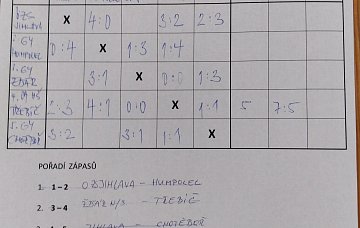 JIHLAVA X 4:0 3:2 2:3
2. GY
HUMPOLEC 0:4 X 1:3 1:4
3. GY
ŽĎÁR 3:1 X 0:0 1:3
TŘEBÍČ 2:3 4:1 0:0 X 1:1 5 7:5
5. GY
CHOTĚBOŘ 3:2 3:1 1:1 X
POŘADÍ ZÁPASŮ
1. 1 – 2 OZSJIHLAVA – HUMPOLEC
2. 3 – 4 ŽĎÁR N/S – TŘEBÍČ
JIHLAVA – CHOTĚBOŘ